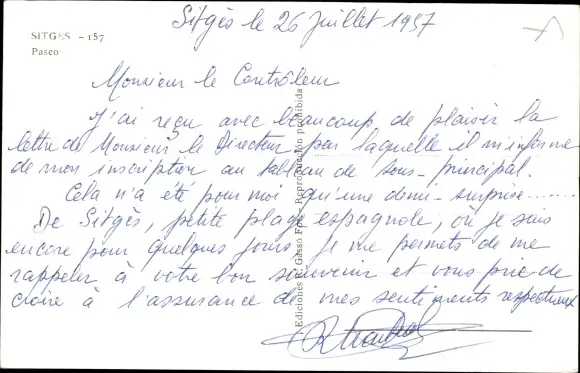 Sitgès le 26 Juillet 1957
SITGES - 157
Paseo
Monsieur le Contrôleur
J'ai reçu avec beaucoup de plaisir la
lettre de Monsieur le Directeur par laquelle il m'informe
de mon inscription au tableau de sous-principal.
Cela n'a été pour moi qu'une demi-surprise........
De Sitgès, petite plage espagnole, où je suis
encore pour quelques jours je me permets de me
rappeler à votre bon souvenir et vous prie de
croire à l'assurance de mes sentiments respectueux
Ediciones R. Gasso Fot - Reproducción prohibida